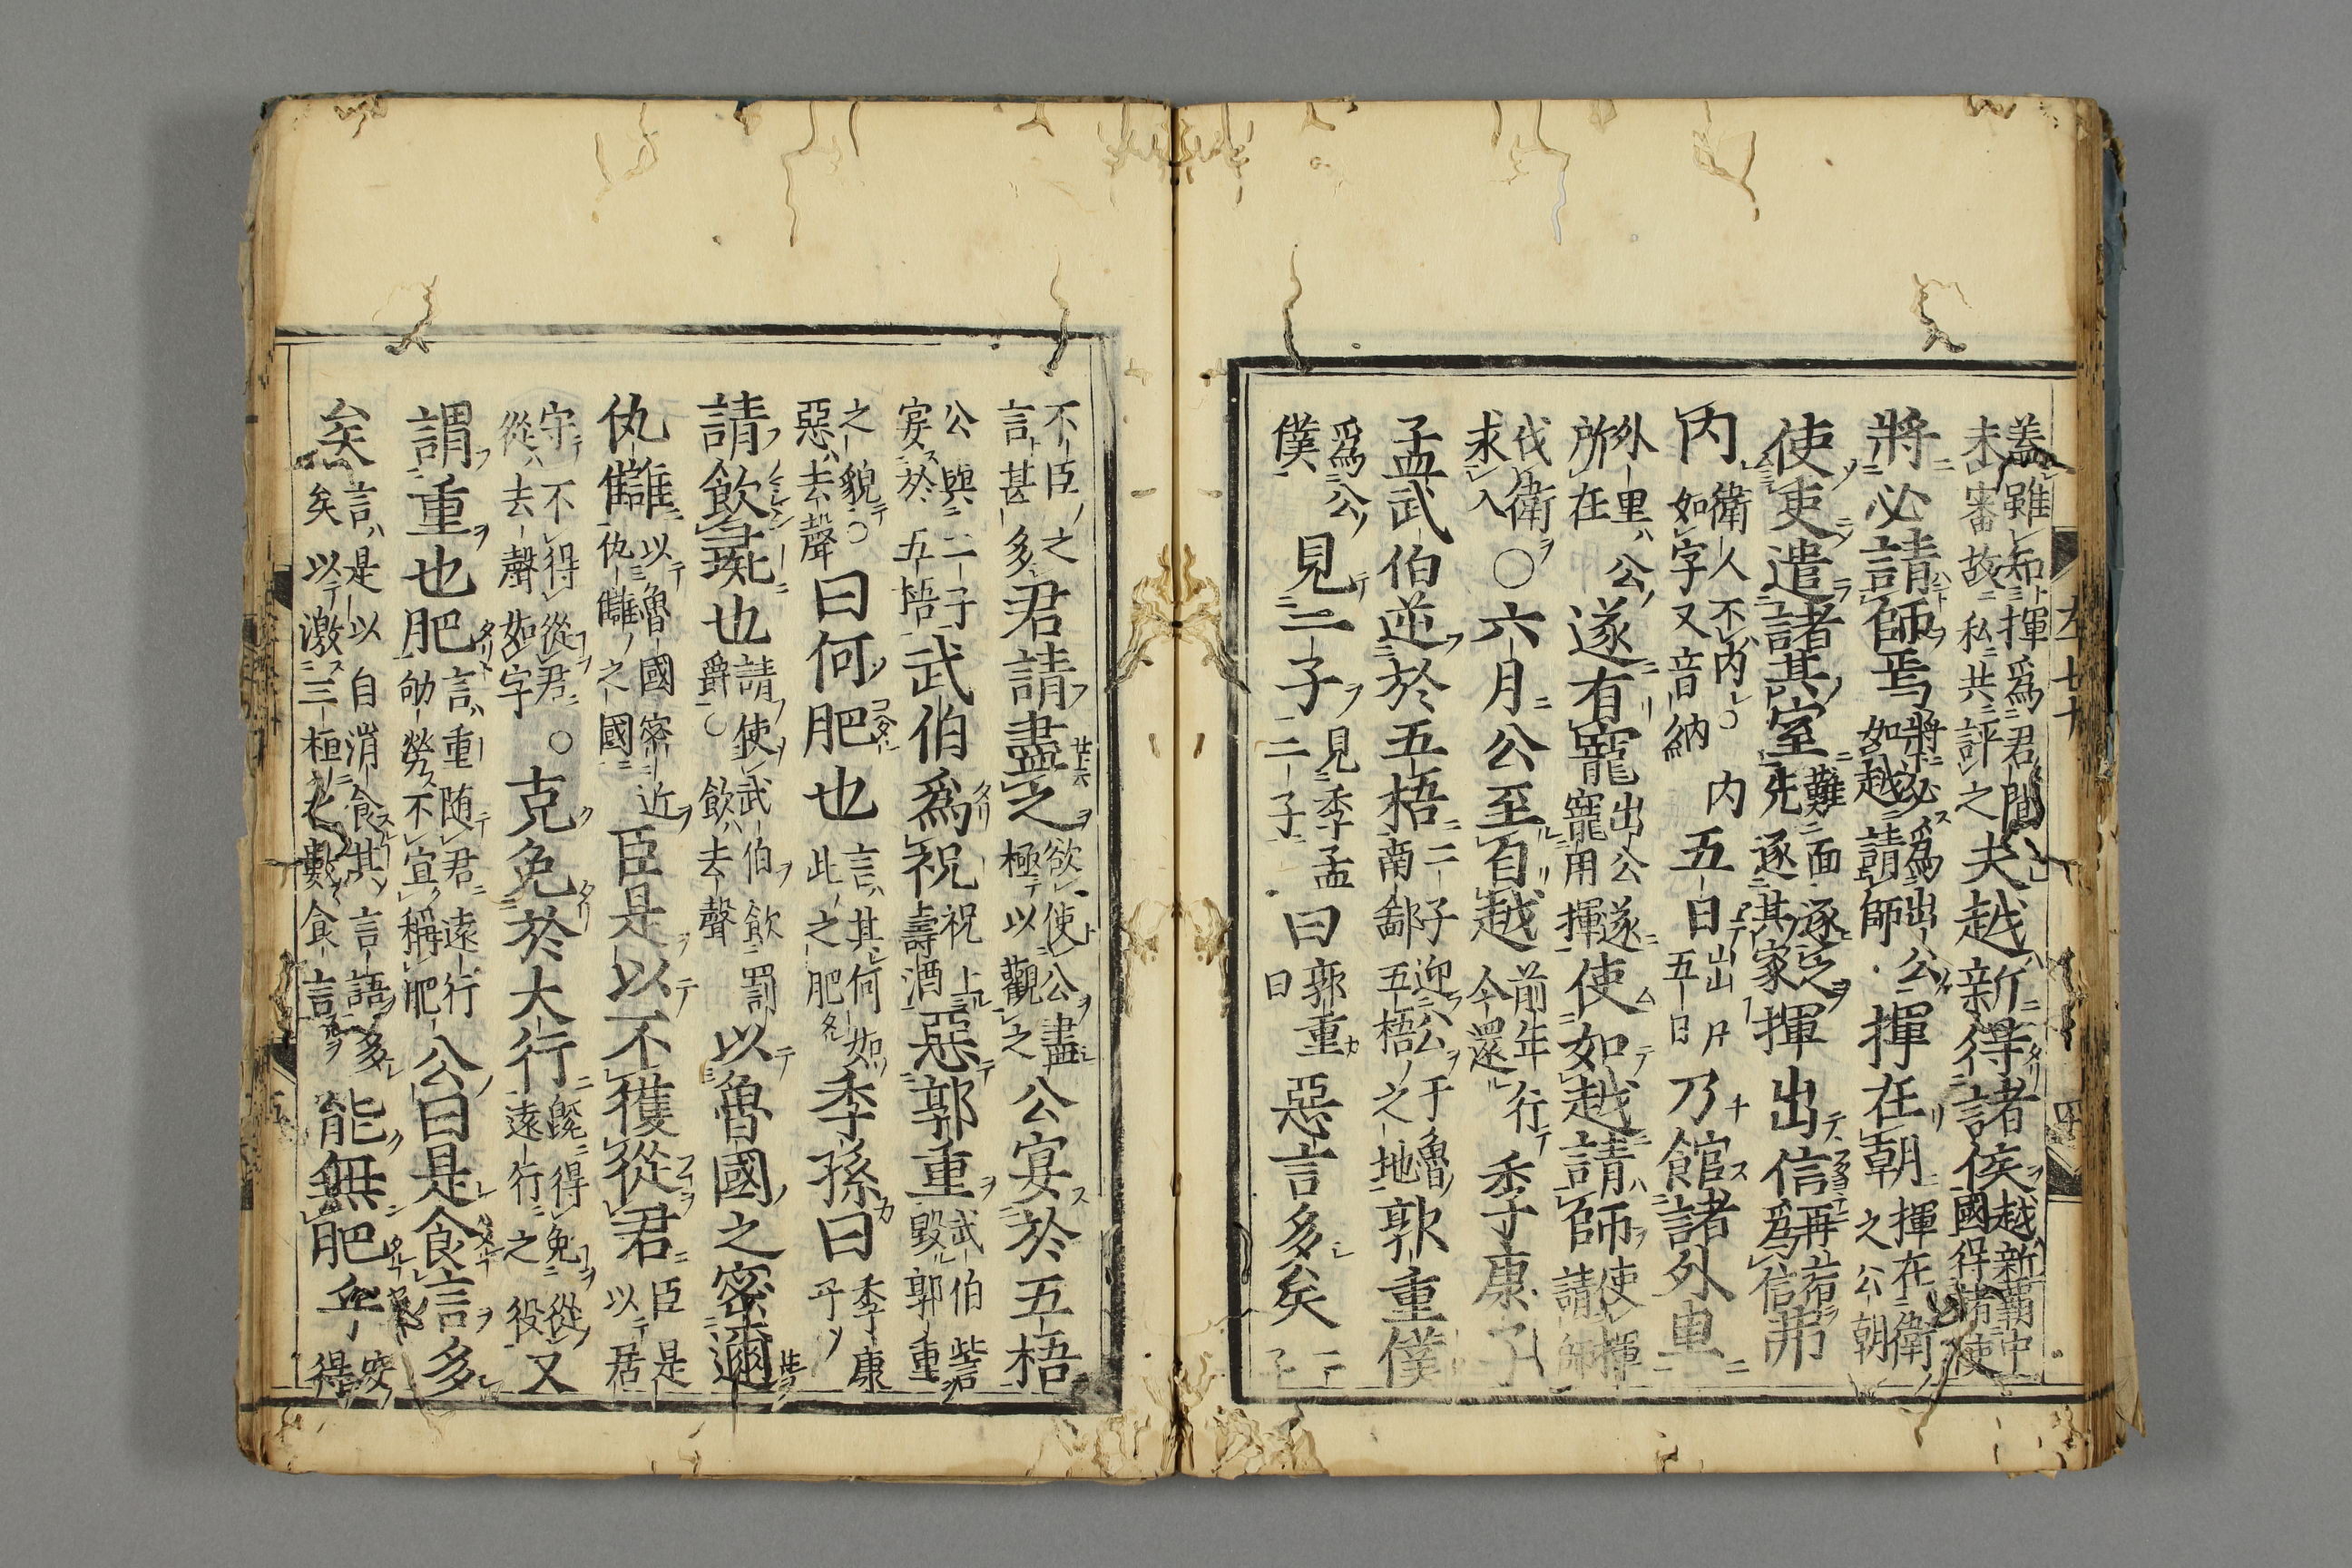 蓋雖知揮爲君間
未審故私共評之
夫越新得諸侯
越新覇中
國得諸使
將必請師焉
將必爲出公
如越請師
揮在朝
揮在衛
之公朝
使吏遣諸其室
難面逐之
先逐其家
揮出信
再宿
爲信
弗
内
衛人不内〇内
如字又音納
五日
五日
乃館諸外車
外里公
所在
遂有寵
出公遂
寵用揮
使如越請師
使揮
請師
伐衛
求入
〇六月公至自越
前年行
今還
季康子
孟武伯逆於五梧
二子迎公于魯
南鄙五梧之地
郭重僕
爲公
僕
見二子
見季孟
二子
曰
郭重
曰
惡言多矣
二
子
不臣之
言甚多
君請盡之
欲使公盡
極以觀之
公宴於五梧
公與二子
宴於五梧
武伯爲祝
祝上
壽酒
惡郭重
武伯訾
毀郭重
之貌〇
惡去聲
曰何肥也
言其何如
此之肥
季孫曰
季康
子
請飲彘也
請使武伯飲罰
爵〇飲去聲
以魯國之密邇
仇讎
以魯國密近
仇讎之國
臣是以不獲從君
臣是
以居
守不得從君〇
從去聲如字
克免於大行
既得免從
遠行之役
又
謂重也肥
言重随君遠行
劬勞不宜稱肥
公曰是食言多
矣
言是以自消食其言語多
矣以激三桓之數食言
能無肥乎
安
得